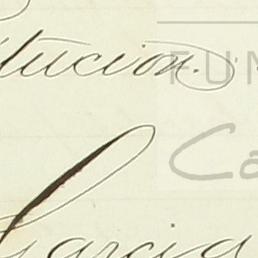 itución.
FUN
Ca
Garcia